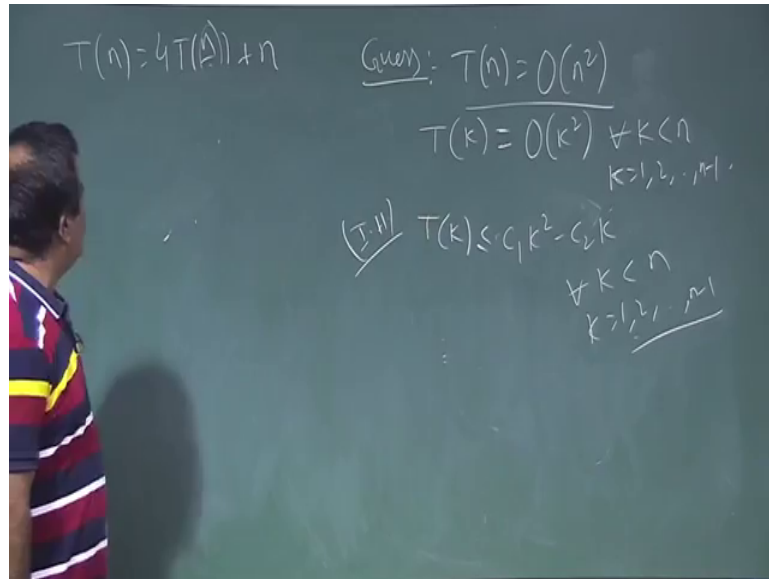 T(n) = 4T(n)) + n
Guess: T(n) = O(n²)
T(k) = O(k²) ∀ k < n
k = 1, 2, .., n-1.
(I.H) T(k) ≤ c₁k² - c₂k
∀ k < n
k = 1, 2, .., n-1